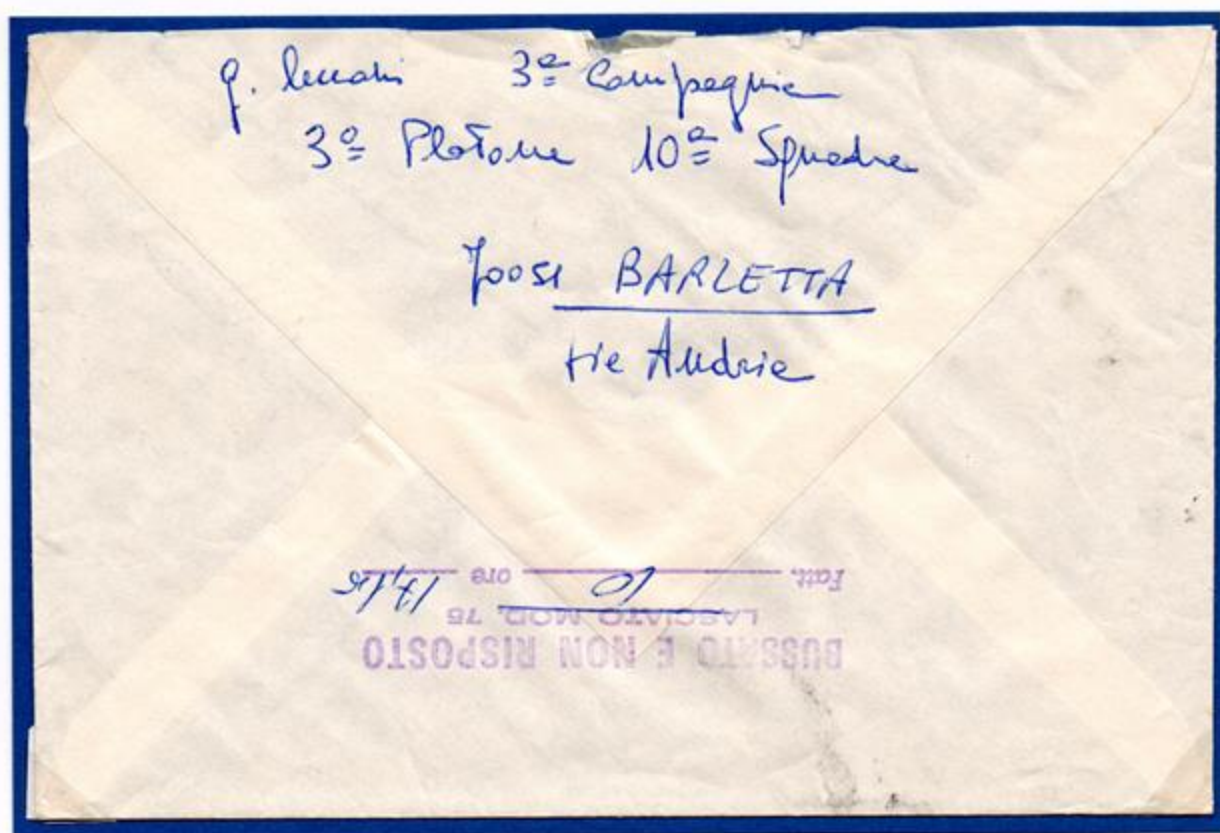 3ª Compagnia
3º Plotone 10ª Squadra
70051 BARLETTA
via Andria
BUSSATO E NON RISPOSTO
LASCIATO MOD. 75
Fatt. 10 ore 17,15